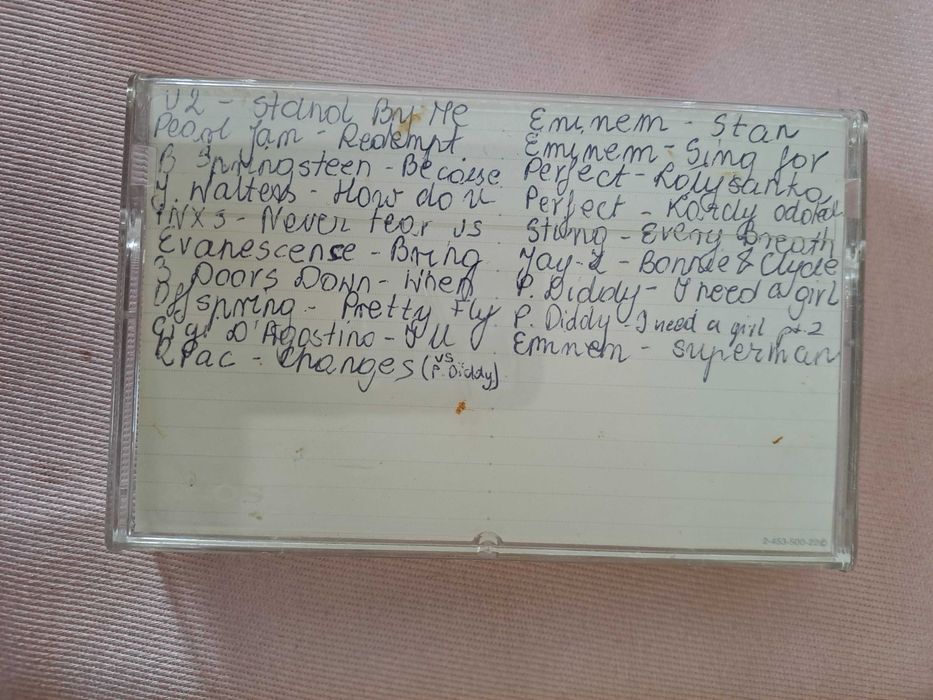 U2 - Stand By Me
Pearl Jam - Redempt
B Springsteen - Because
J. Walters - How do u
INXS - Never tear us
Evanescense - Bring
3 Doors Down - When
Offspring - Pretty Fly
Gigi D'Agostino - I'll
2Pac - Changes (vs P. Diddy)
Eminem - Stan
Eminem - Sing for
Perfect - Kołysanka
Perfect - Każdy
Sting - Every Breath
Jay-Z - Bonnie & Clyde
P. Diddy - I need a girl
P. Diddy - I need a girl pt. 2
Eminem - Superman
2-453-500-22©